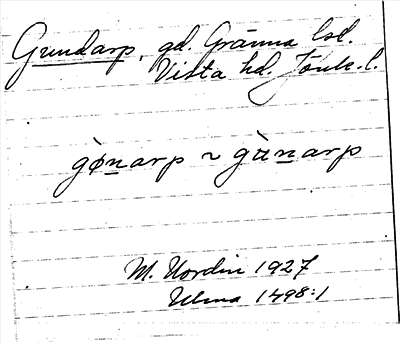 Grundarp, gd. Gränna lsl.
Vista hd. Jönk. l.
gø̀narp ~ gùnarp
M. Nordin 1927
Ulma 1498:1